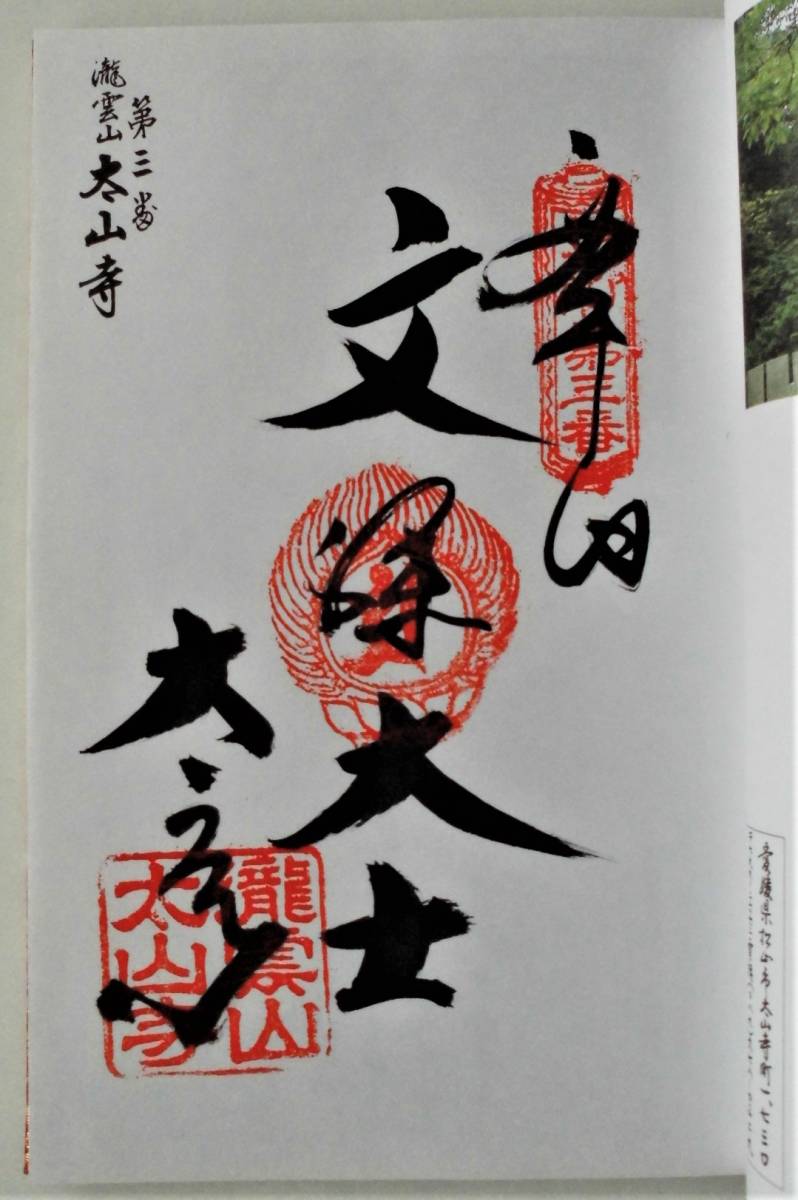 奉納
文殊大士
太山寺
第三番
瀧雲山 太山寺
第三番
瀧雲山
太山寺
愛媛県松山市太山寺町一、七三〇